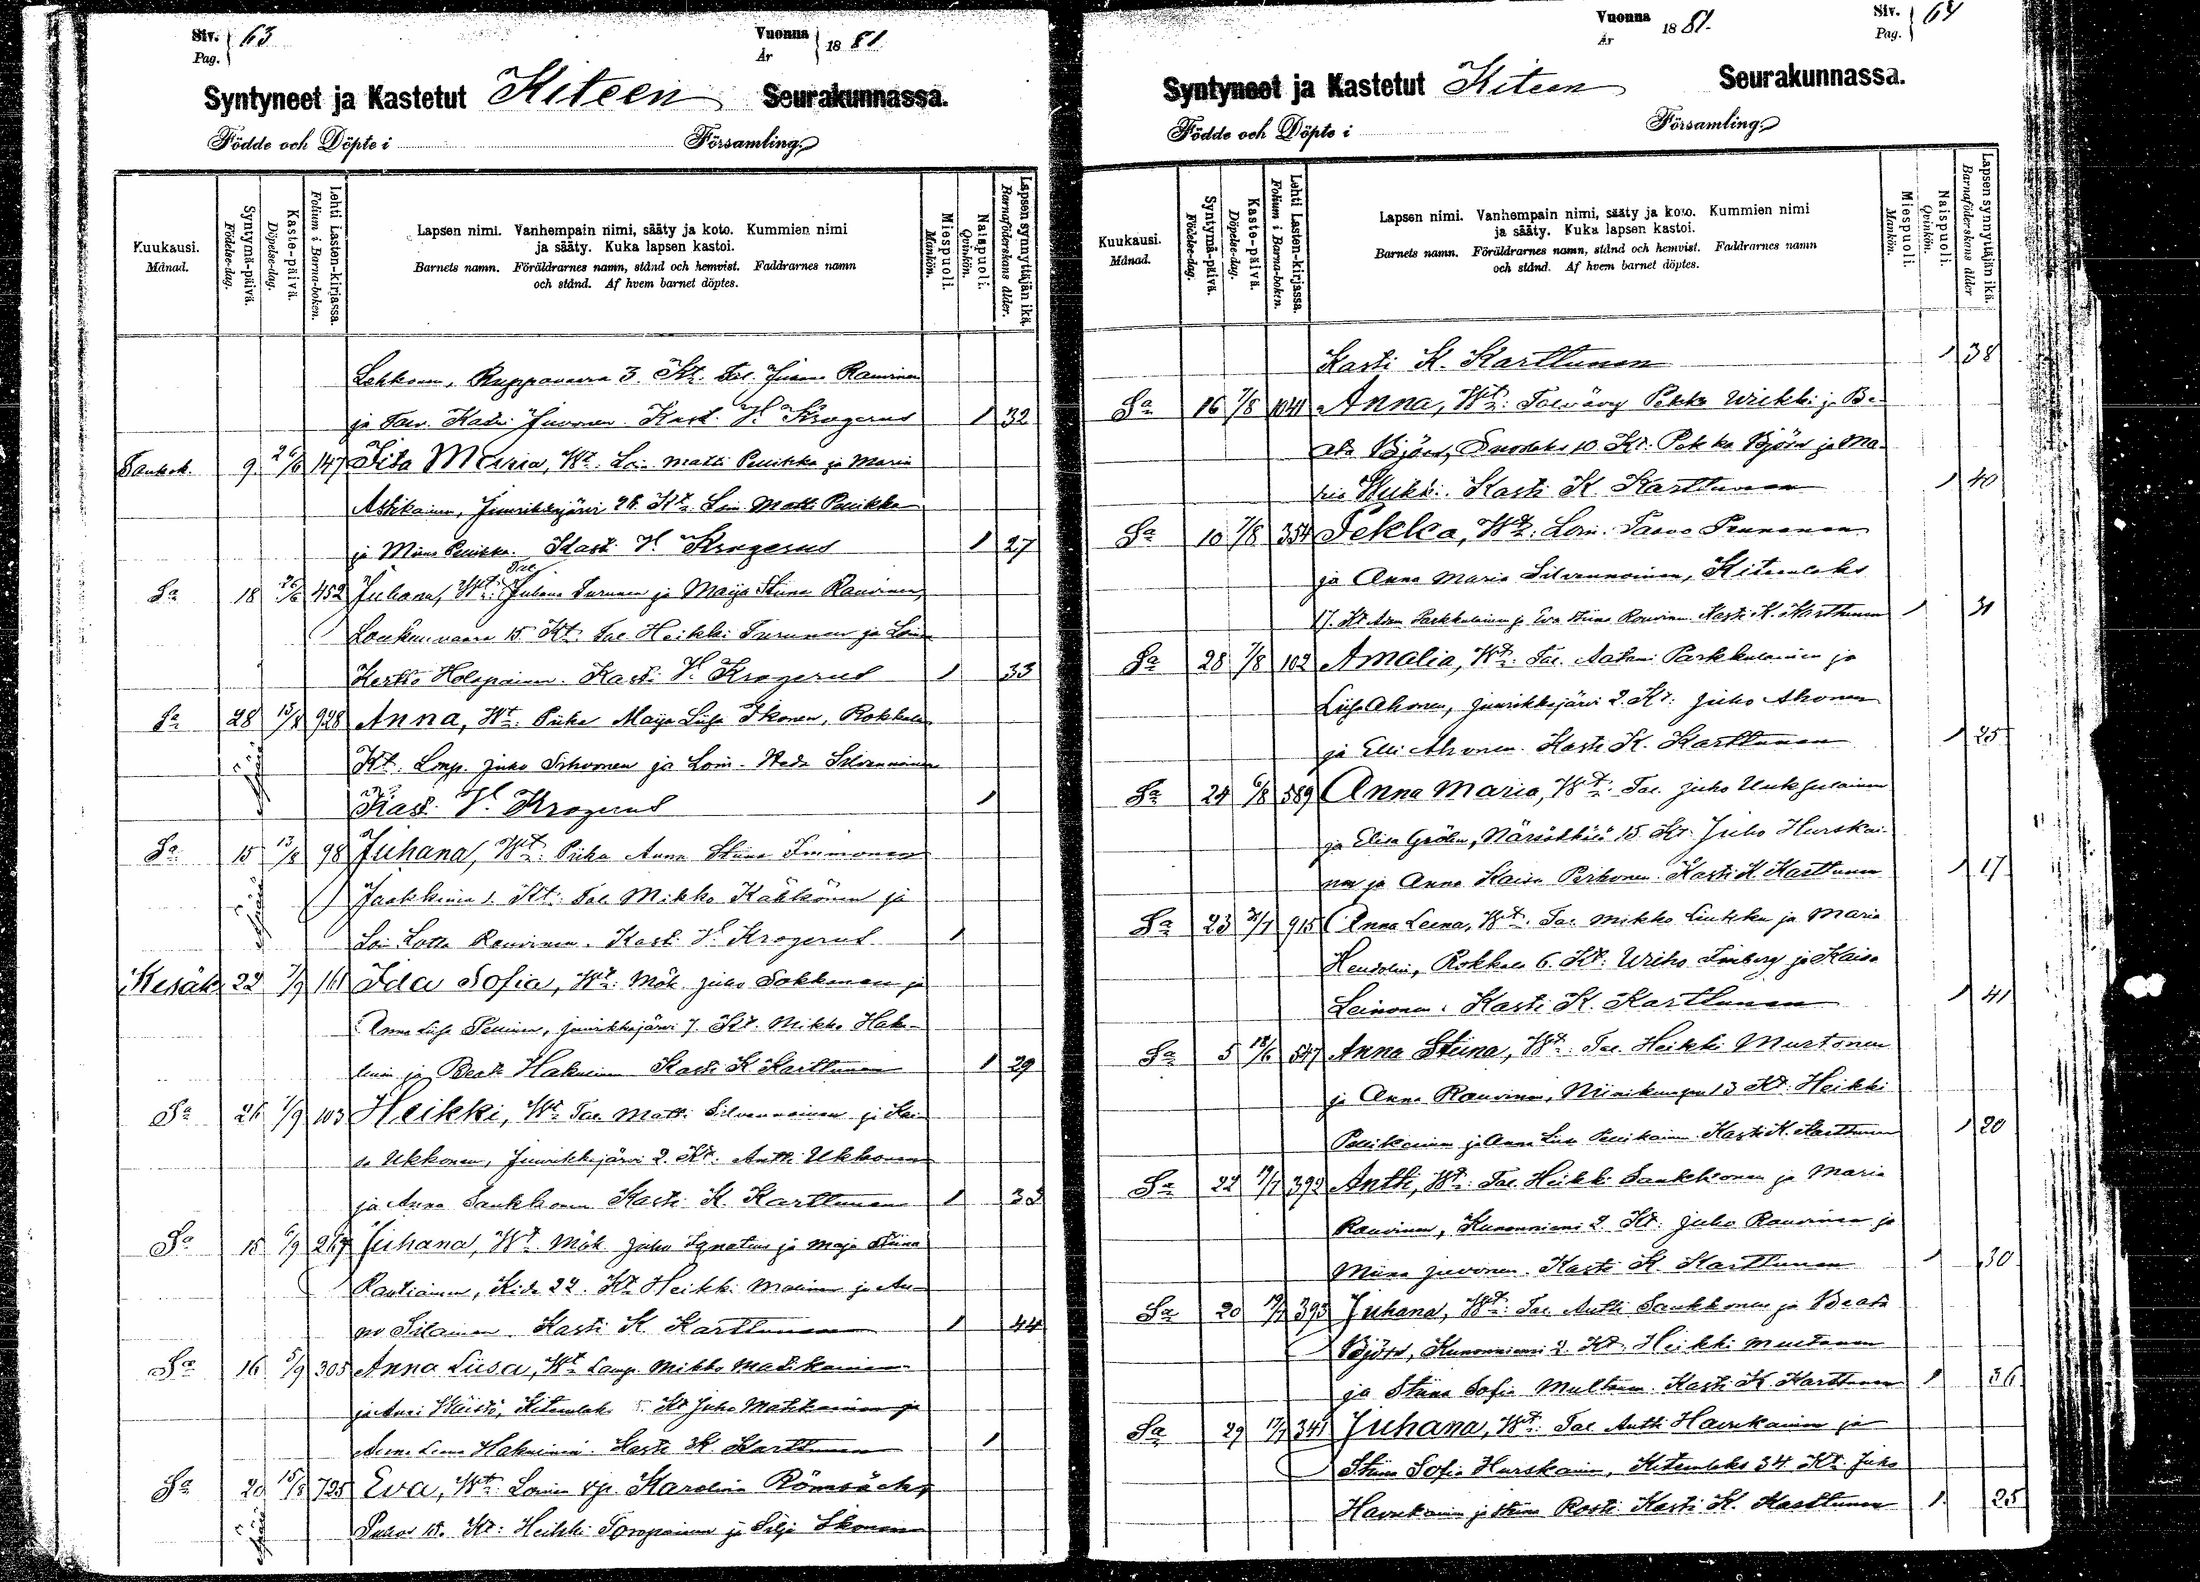 Siv. Pag. 63
Vuonna År 1881
Syntyneet ja Kastetut Kiteen Seurakunnassa.
Födde och Döpte i Församling.
Kuukausi. Månad.
Syntymä-päivä. Födelse-dag.
Kaste-päivä. Döpelse-dag.
Lehti Lasten-kirjassa. Folium i Barna-boken.
Lapsen nimi. Vanhempain nimi, sääty ja koto. Kummien nimi
ja sääty. Kuka lapsen kastoi.
Barnets namn. Föräldrarnes namn, stånd och hemvist. Faddrarnes namn
och stånd. Af hvem barnet döptes.
Miespuoli. Mankön.
Naispuoli. Qvinkön.
Lapsen synnyttäjän ikä. Barnaföderskans ålder.
3. Kt. Juvonen. Kast. V. Krogerus 1 32
Toukok. 9 26/6 147 Iita Maria, Wt. Loi. Matti Pesikka ja Maria
Juurikkajärvi 28. Kt. Loi. Matti
ja Miina Kast. V. Krogerus 1 27
Sa 18 26/6 452 Juhana, Wt. Tal. Juhana Turunen ja Maija Stiina Rauvinen,
15. Kt. Tal. Heikki Turunen ja Loi.
Kerttu Holopainen. Kasti V. Krogerus 1 33
Sa 28 15/8 928 Anna, Wt. Piika Maija Liisa Ikonen, Rokkala
Kt. Juho ja Loi. Silvennoinen
Kast. V. Krogerus 1
Sa 15 13/8 98 Juhana, Wt. Piika Anna Stiina Immonen
1. Kt. Tal. Mikko Kähkönen ja
Loi. Lotta Rauvinen. Kast. V. Krogerus 1
Kesäk. 22 7/9 161 Ida Sofia, Wt. Mök. Juho Sokkanen ja
Anna Liisa Juurikkajärvi 7. Kt. Mikko Haku-
ja Beata Hakulinen Kasti K. Karttunen 1 29
Sa 26 7/9 103 Heikki, Wt. Tal. Matti Silvennoinen ja Kai-
sa Ukkonen, Juurikkajärvi 2. Kt. Antti Ukkonen
ja Anna Saukkonen Kasti K. Karttunen 1 33
Sa 15 6/9 267 Juhana, Wt. Mök. Juho Ignatius ja Maija Stiina
Rautiainen, Kide 22. Kt. Heikki Malinen ja An-
na Kasti K. Karttunen 1 44
Sa 16 5/9 305 Anna Liisa, Wt. Mikko Matikainen
ja Kiteenlaks 5. Kt. Juho Matikainen ja
Anna Leena Hakulinen. Kasti K. Karttunen 1
Sa 20 15/8 725 Eva, Wt. Karolina
Kt. Heikki Toropainen ja Silja Ikonen
Siv. Pag. 64
Vuonna År 1881.
Syntyneet ja Kastetut Kiteen Seurakunnassa.
Födde och Döpte i Församling.
Kuukausi. Månad.
Syntymä-päivä. Födelse-dag.
Kaste-päivä. Döpelse-dag.
Lehti Lasten-kirjassa. Folium i Barna-boken.
Lapsen nimi. Vanhempain nimi, sääty ja koto. Kummien nimi
ja sääty. Kuka lapsen kastoi.
Barnets namn. Föräldrarnes namn, stånd och hemvist. Faddrarnes namn
och stånd. Af hvem barnet döptes.
Miespuoli. Mankön.
Naispuoli. Qvinkön.
Lapsen synnyttäjän ikä. Barnaföderskans ålder
Kasti K. Karttunen 1 38
Sa 16 7/8 1041 Anna, Wt. Pekka Wirkki ja Be-
ata Björn, 10 Kt. Pekka Björn ja Ma-
ria Kasti K. Karttunen 1 40
Sa 10 7/8 354 Pekka, Wt. Loi. Paavo Pennanen
ja Anna Maria Silvennoinen, Kiteenlaks
17. Kt. Parkkulainen ja Eva Stiina Rouvinen. Kasti K. Karttunen 1 31
Sa 28 7/8 102 Amalia, Wt. Tal. Aatami Parkkulainen ja
Liisa Ahonen, Juurikkajärvi 2. Kt. Juho Ahonen
ja Elli Ahonen. Kasti K. Karttunen 1 25
Sa 24 6/8 589 Anna Maria, Wt. Tal. Juho Uuksulainen
ja Elisa Gröhn, Närsäkkälä 15. Kt. Juho Hurskai-
nen ja Anna Kaisa Pirhonen. Kasti K. Karttunen 1 17
Sa 23 31/7 915 Anna Leena, Wt. Tal. Mikko ja Maria
Hendolin, Rokkala 6. Kt. ja Kaisa
Leinonen. Kasti K. Karttunen 1 41
Sa 5 18/6 547 Anna Stiina, Wt. Tal. Heikki Mustonen
ja Anna Rauvinen, Niinikumpu 13 Kt. Heikki
Pesikainen ja Anna Liisa Kasti K. Karttunen 1 20
Sa 22 19/7 392 Antti, Wt. Tal. Heikki Saukkonen ja Maria
Rauvinen, Kunonniemi 2. Kt. Juho Rauvinen ja
Miina Juvonen. Kasti K. Karttunen 1 30
Sa 20 19/7 393 Juhana, Wt. Tal. Antti Saukkonen ja Beata
Björn, Kunonniemi 2. Kt. Heikki
ja Stiina Sofia Multanen. Kasti K. Karttunen 1 36
Sa 29 17/7 341 Juhana, Wt. Tal. Antti Havukainen ja
Stiina Sofia Hurskainen, Kiteenlaks 34. Kt. Juho
Havukainen ja Stiina Rosti. Kasti K. Karttunen 1. 25